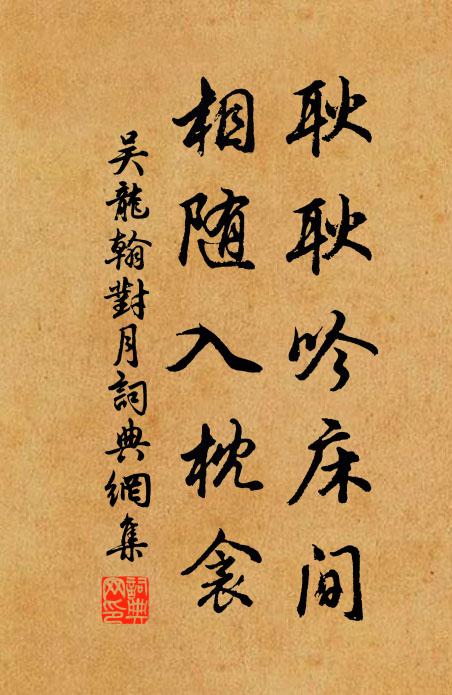 耿耿吟床间
相随入枕衾
吴龍翰對月詞典網集
詞典
网印